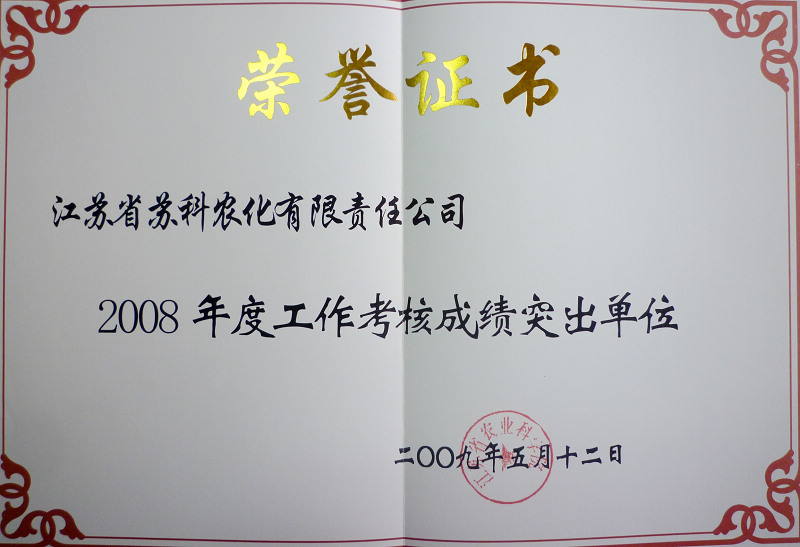 荣誉证书
江苏省苏科农化有限责任公司
2008年度工作考核成绩突出单位
二〇〇九年五月十二日